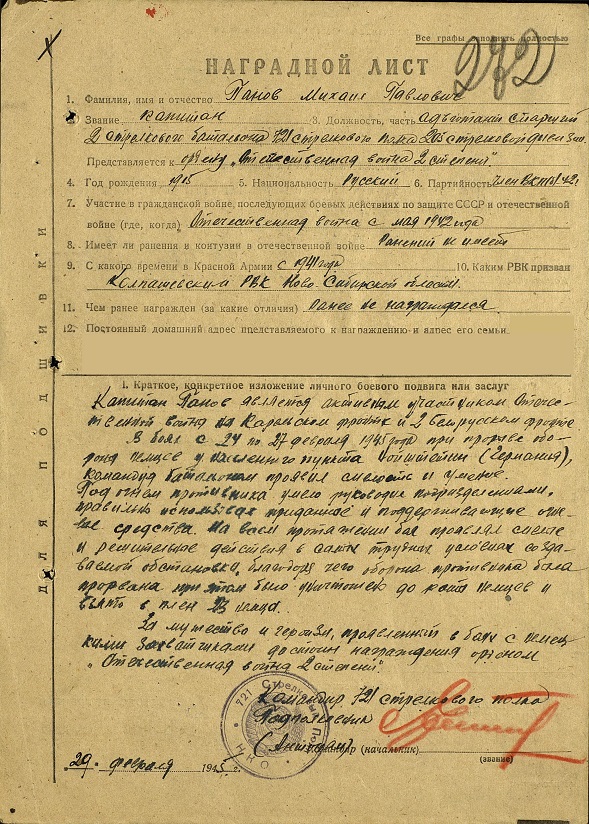 Все графы заполнять полностью
272
НАГРАДНОЙ ЛИСТ
1. Фамилия, имя и отчество Панов Михаил Павлович
2. Звание капитан 3. Должность, часть адъютант старший
2 стрелкового батальона 721 стрелкового полка 205 стрелковой
Представляется к ордену „Отечественная война 2 степени"
4. Год рождения 1915 5. Национальность Русский 6. Партийность член ВКП(б)
7. Участие в гражданской войне, последующих боевых действиях по защите СССР и отечественной
войне (где, когда) Отечественная война с мая 1942 года
8. Имеет ли ранения и контузии в отечественной войне Ранений не имеет
9. С какого времени в Красной Армии с 1941 года 10. Каким РВК призван
Колпашевский РВК Ново-Сибирской области
11. Чем ранее награжден (за какие отличия) Ранее не награждался
12. Постоянный домашний адрес представляемого к награждению и адрес его семьи
ДЛЯ ПОДШИВКИ
I. Краткое, конкретное изложение личного боевого подвига или заслуг
Капитан Панов является активным участником Отечес-
твенной войны на Карельском фронте и 2 Белорусском фронте
В боях с 24 по 27 февраля 1945 года при прорыве обо-
роны немцев у населенного пункта (Германия),
командуя батальоном проявил смелость и умение.
Под огнем противника умело руководил подразделениями,
правильно использовал приданные и поддерживающие огне-
вые средства. На всем протяжении боя проявлял смелые
и решительные действия в самых трудных условиях созда-
ваемой обстановки, благодаря чего оборона противника была
прорвана при этом было уничтожен до роты немцев и
взято в плен 23 немца.
За мужество и героизм, проявленный в боях с немец-
кими захватчиками достоин награждения орденом
„Отечественная война 2 степени".
Командир 721 стрелкового полка
Подполковник
Командир (начальник)
(звание)
721 Стрелковый Полк НКО
29. февраля 1945 г.